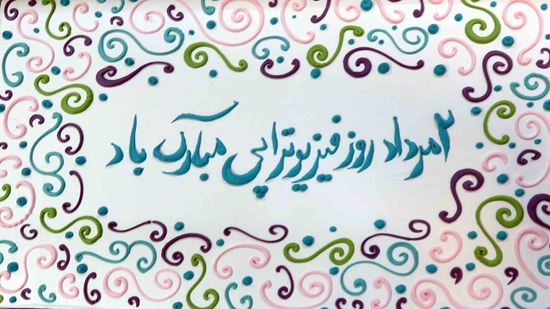 ۲ مرداد روز فیزیوتراپی مبارک باد